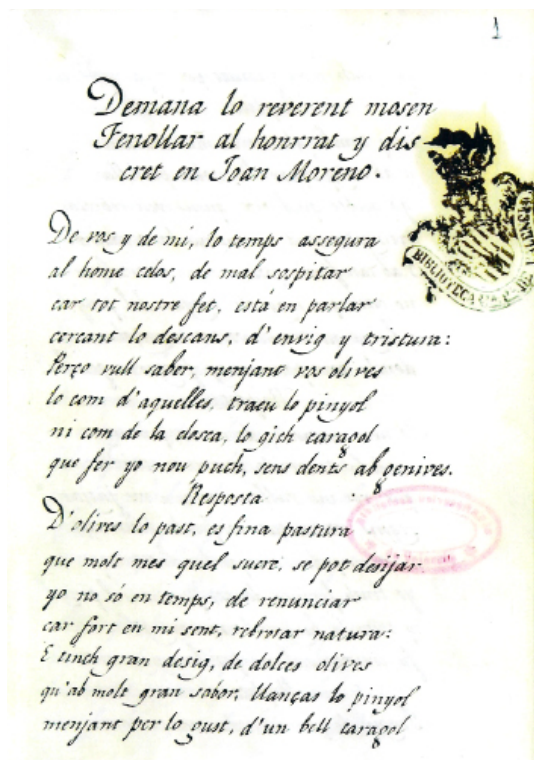 1
Demana lo reverent mosen
Fenollar al honrrat y dis
cret en Joan Moreno.
De vos y de mi, lo temps assegura
al home celos, de mal sospitar
car tot nostre fet, está en parlar
cercant lo descans, d'enuig y tristura:
Perço vull saber, menjant vos olives
lo com d'aquelles, traeu lo pinyol
ni com de la closca, lo gich caragol
que fer yo nou puch, sens dents ab genives.
Resposta
D'olives lo past, es fina pastura
que molt mes quel sucre, se pot desijar
yo no só en temps, de renunciar
car fort en mi sent, rebrotar natura:
E tinch gran desig, de dolces olives
qu'ab molt gran sabor, llanças lo pinyol
menjant per lo gust, d'un bell caragol
BIBLIOTECA